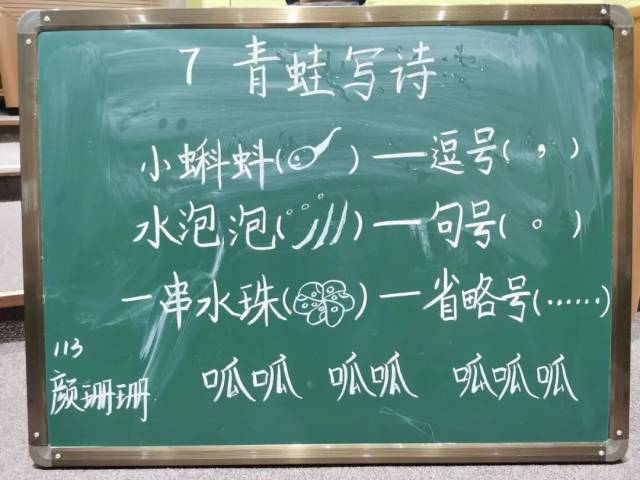 7 青蛙写诗
小蝌蚪( )—逗号( , )
水泡泡( )—句号( 。 )
一串水珠( )—省略号(……)
113
颜珊珊
呱呱 呱呱 呱呱呱